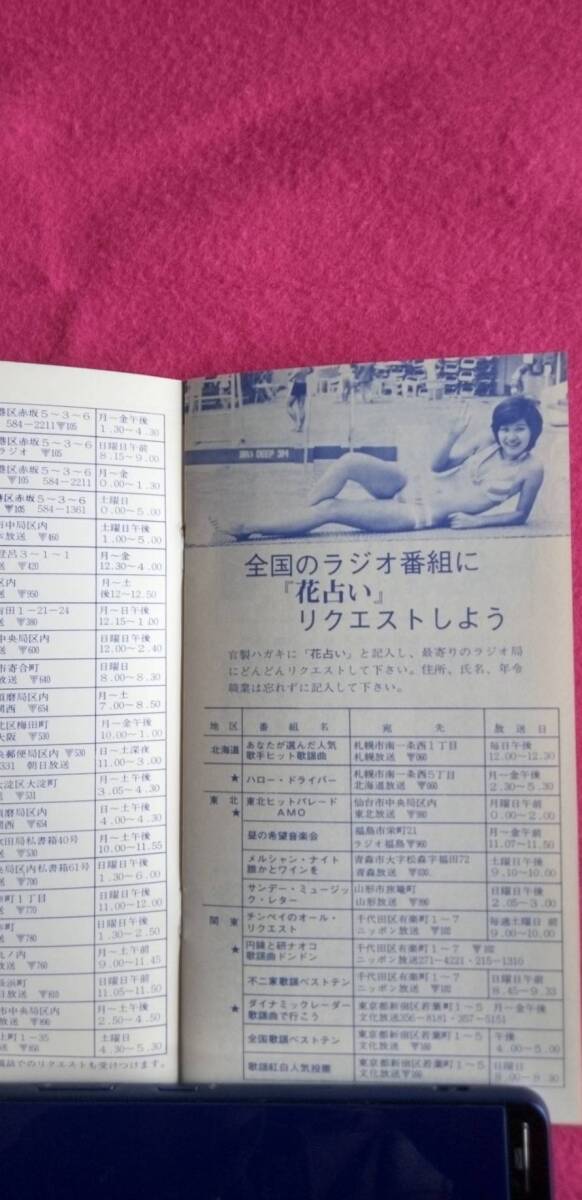 港区赤坂5〜3〜6
584-2211〒105
月〜金午後
1.30〜4.30
ラジオ 〒105
日曜日午前
8.15〜9.00
港区赤坂5〜3〜6
〒105 584-2211
月〜金
0.00〜1.30
港区赤坂5〜3〜6
〒105 584-1361
土曜日
0.00〜5.00
田中局区内
放送 〒460
土曜日午後
1.00〜5.00
登呂3〜1〜1
〒420
月〜金
12.30〜4.00
区内
〒950
月〜土
後12〜12.50
有田1-21-24
〒380
月〜日午後
12.15〜1.00
中央局区内
〒600
日曜日午後
12.00〜2.40
市寄合町
放送 〒640
日曜日
8.00〜8.30
須磨局区内
関西 〒654
月〜土
7.00〜8.50
北区梅田町
大阪 〒530
月〜金午後
10.00〜1.00
央郵便局区内 〒530
331 朝日放送
日〜土深夜
11.00〜3.00
大淀区大淀町
〒531
月〜土午後
3.05〜4.30
須磨局区内
関西 〒654
日〜土午後
4.00〜4.30
吹田局私書箱40号
〒530
月〜土午後
10.00〜11.55
局区内私書箱61号
〒700
日曜日午後
1.30〜6.00
町1丁目
〒770
日曜日午後
11.00〜12.00
本町
〒780
日曜日午後
1.30〜2.50
丸ノ内
放送 〒760
月〜土午前
9.00〜11.45
長浜町
日放送 〒810
日曜日午後
11.05〜11.50
市中央局区内
〒890
月〜土午後
2.50〜4.50
上町1-35
土曜日
4.30〜5.30
電話でのリクエストも受けつけます。
全国のラジオ番組に
『花占い』
リクエストしよう
官製ハガキに「花占い」と記入し、最寄りのラジオ局
にどんどんリクエストして下さい。住所、氏名、年令
職業は忘れずに記入して下さい。
地区 番組名 宛先 放送日
北海道 あなたが選んだ人気
歌手ヒット歌謡曲
札幌市南一条西1丁目
札幌放送 〒060
毎日午後
12.00〜12.30
★ ハロー・ドライバー
札幌市南一条西5丁目
北海道放送 〒060
月〜金午後
2.30〜5.30
東北
★
東北ヒットパレード
AMO
仙台市中央局区内
東北放送 〒980
月曜日午前
0.00〜2.00
昼の希望音楽会
福島市栄町21
ラジオ福島 〒960
月〜金午前
11.07〜11.50
メルシャン・ナイト
誰かとワインを
青森市大字松森字福田72
青森放送 〒030
土曜日午後
9.10〜10.00
サンデー・ミュージッ
ク・レター
山形市旅篭町
山形放送 〒990
日曜日午後
2.05〜3.00
関東 チンペイのオール・
リクエスト
千代田区有楽町1-7
ニッポン放送 〒100
毎週土曜日 前
0.00〜5.00
★ 円鏡と研ナオコ
歌謡曲ドンドン
千代田区有楽町1-7 〒100
ニッポン放送271-4221・215-1310
不二家歌謡ベストテン
千代田区有楽町1-7
ニッポン放送 〒100
日曜日午前
8.45〜9.33
★ ダイナミックレーダー
歌謡曲で行こう
東京都新宿区若葉町1〜5
文化放送356-8181・357-5151
月〜金午後
全国歌謡ベストテン
東京都新宿区若葉町1〜5
文化放送 〒160
午後
4.00〜5.00
歌謡紅白人気投票
東京都新宿区若葉町1〜5
文化放送〒160
日曜日
8.00〜9.30